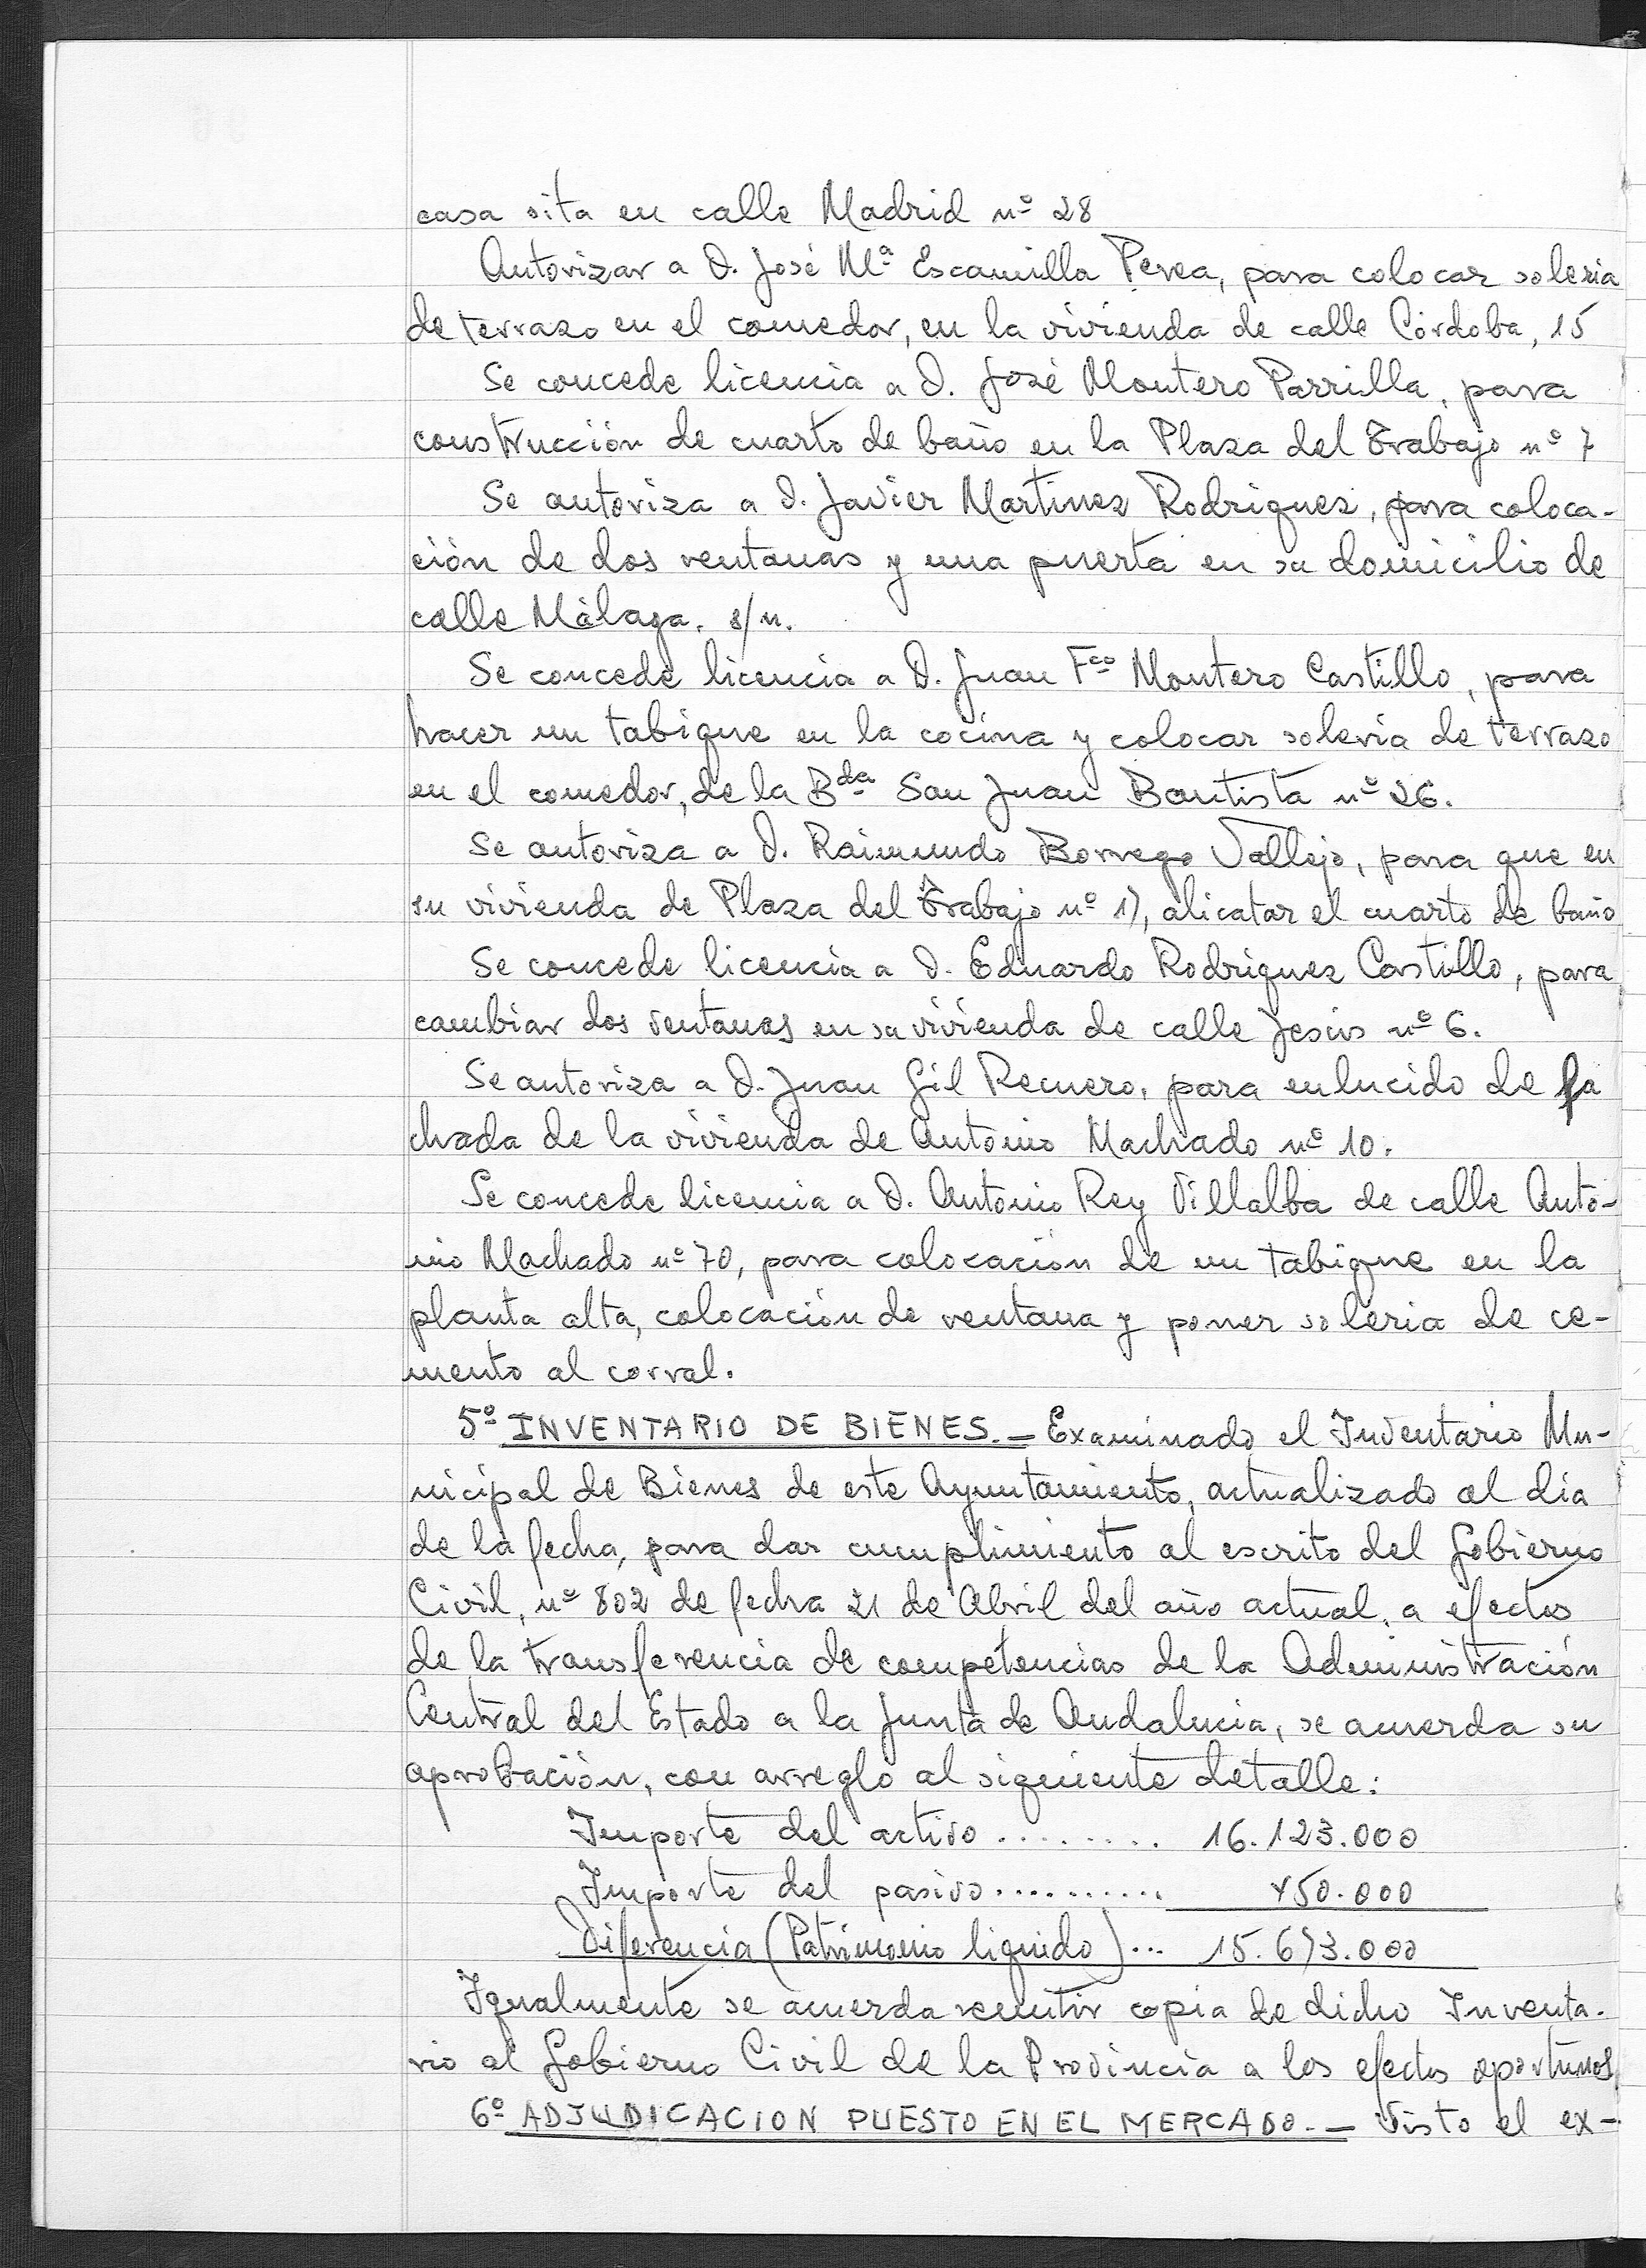 casa sita en calle Madrid nº 28
Autorizar a D. José Mª Escamilla Perea, para colocar soleria
de terrazo en el comedor, en la vivienda de calle Córdoba, 15
Se concede licencia a D. José Montero Parrilla, para
construcción de cuarto de baño en la Plaza del Trabajo nº 7
Se autoriza a D. Javier Martinez Rodriguez, para coloca-
ción de dos ventanas y una puerta en su domicilio de
calle Málaga, s/n.
Se concede licencia a D. Juan Fco Montero Castillo, para
hacer un tabique en la cocina y colocar soleria de terrazo
en el comedor, de la Bda San Juan Bautista nº 26.
Se autoriza a D. Raimundo Borrego Vallejo, para que en
su vivienda de Plaza del Trabajo nº 17, alicatar el cuarto de baño
Se concede licencia a D. Eduardo Rodriguez Castillo, para
cambiar dos ventanas en su vivienda de calle Jesús nº 6.
Se autoriza a D. Juan Gil Recuero, para enlucido de fa
chada de la vivienda de Antonio Machado nº 10.
Se concede licencia a D. Antonio Rey Villalba de calle Anto-
nio Machado nº 70, para colocación de un tabique en la
planta alta, colocación de ventana y poner soleria de ce-
mento al corral.
5º INVENTARIO DE BIENES.- Examinado el Inventario Mu-
nicipal de Bienes de este Ayuntamiento, actualizado al dia
de la fecha, para dar cumplimiento al escrito del Gobierno
Civil, nº 802 de fecha 21 de Abril del año actual, a efectos
de la transferencia de competencias de la Administración
Central del Estado a la Junta de Andalucia, se acuerda su
aprobación, con arreglo al siguiente detalle:
Importe del activo ........ 16.123.000
Importe del pasivo .......... 450.000
Diferencia (Patrimonio liquido) ... 15.673.000
Igualmente se acuerda remitir copia de dicho Inventa-
rio al Gobierno Civil de la Provincia a los efectos oportunos
6º ADJUDICACION PUESTO EN EL MERCADO.- Visto el ex-